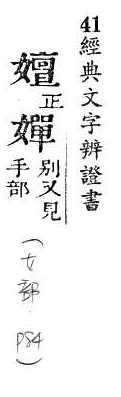 41經典文字辨證書
嬗正
嬋別又見手部
(女部.P84)